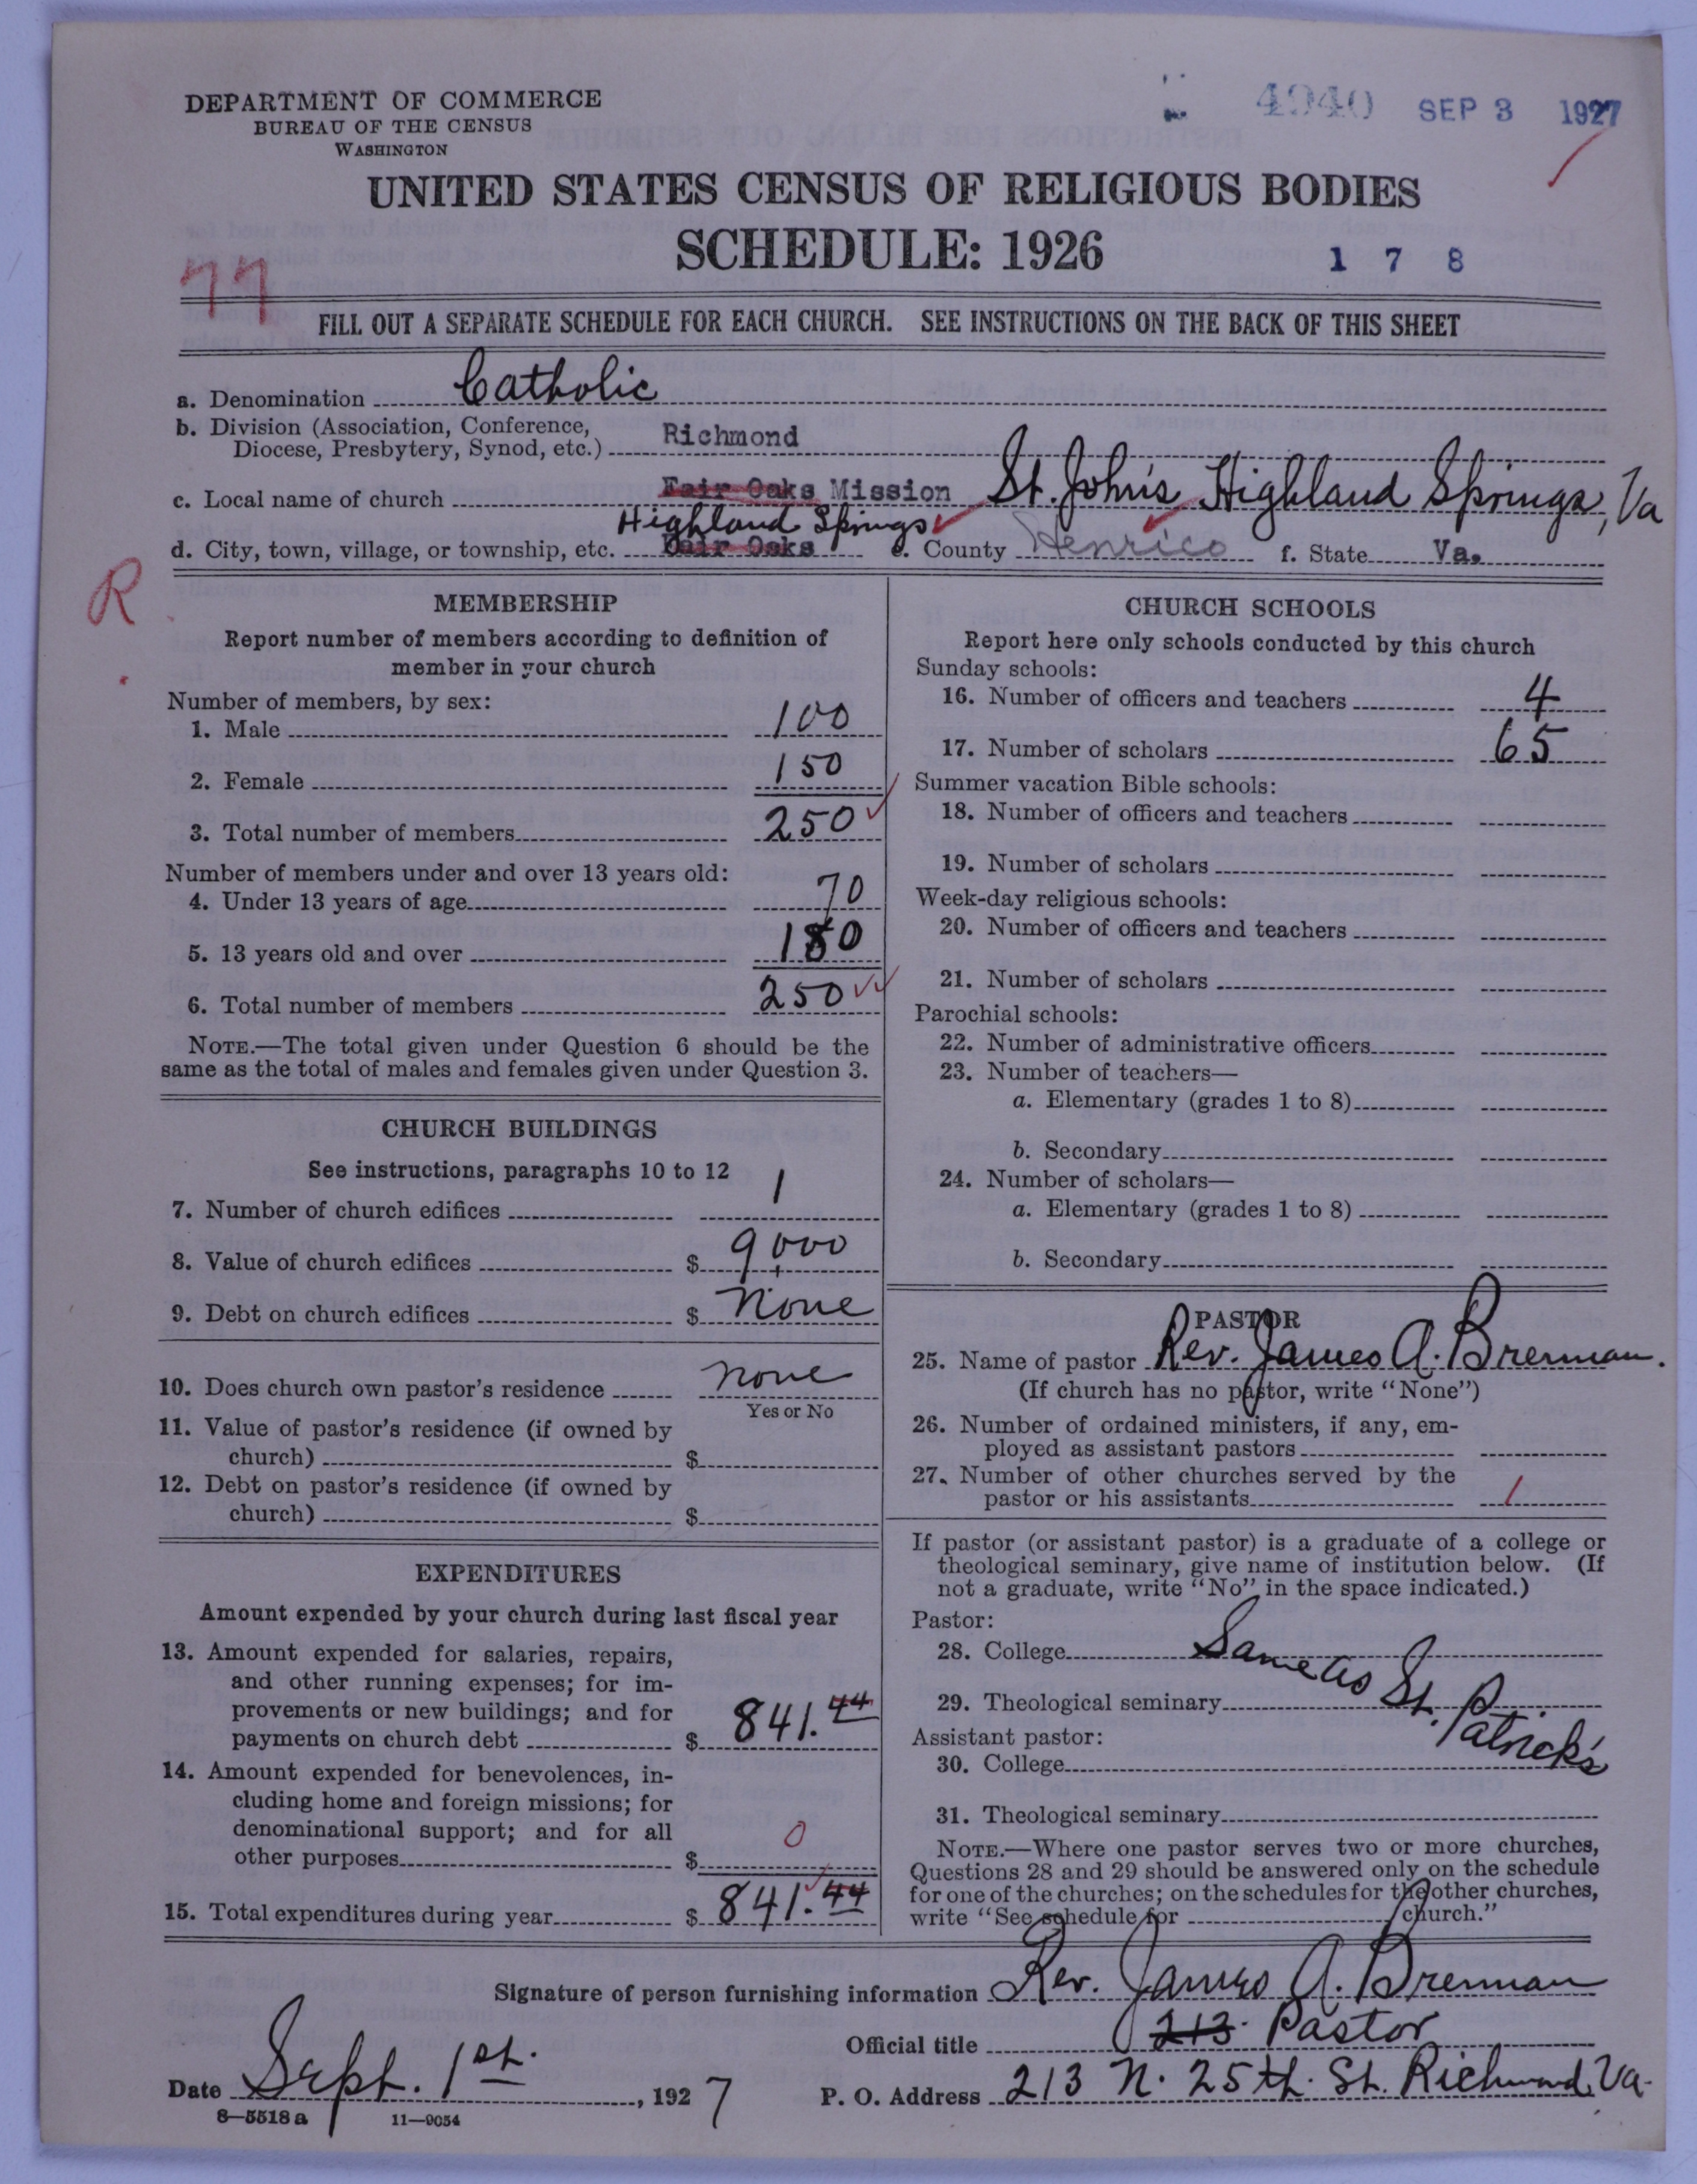 DEPARTMENT OF COMMERCE
BUREAU OF THE CENSUS
WASHINGTON
4940 SEP 3 1927
UNITED STATES CENSUS OF RELIGIOUS BODIES
SCHEDULE: 1926
1 7 8
77
FILL OUT A SEPARATE SCHEDULE FOR EACH CHURCH. SEE INSTRUCTIONS ON THE BACK OF THIS SHEET
a. Denomination Catholic
b. Division (Association, Conference,
Diocese, Presbytery, Synod, etc.) Richmond
c. Local name of church Fair Oaks Mission St. John's Highland Springs, Va
Highland Springs
d. City, town, village, or township, etc. Fair Oaks e. County Henrico f. State Va.
R
MEMBERSHIP
Report number of members according to definition of
member in your church
Number of members, by sex:
1. Male 100
2. Female 150
3. Total number of members 250
Number of members under and over 13 years old:
4. Under 13 years of age 70
5. 13 years old and over 180
6. Total number of members 250
NOTE.—The total given under Question 6 should be the
same as the total of males and females given under Question 3.
CHURCH BUILDINGS
See instructions, paragraphs 10 to 12
7. Number of church edifices 1
8. Value of church edifices $ 9000
9. Debt on church edifices $ None
10. Does church own pastor's residence none
Yes or No
11. Value of pastor's residence (if owned by
church) $
12. Debt on pastor's residence (if owned by
church) $
EXPENDITURES
Amount expended by your church during last fiscal year
13. Amount expended for salaries, repairs,
and other running expenses; for im-
provements or new buildings; and for
payments on church debt $ 841.44
14. Amount expended for benevolences, in-
cluding home and foreign missions; for
denominational support; and for all
other purposes $ 0
15. Total expenditures during year $ 841.44
CHURCH SCHOOLS
Report here only schools conducted by this church
Sunday schools:
16. Number of officers and teachers 4
17. Number of scholars 65
Summer vacation Bible schools:
18. Number of officers and teachers
19. Number of scholars
Week-day religious schools:
20. Number of officers and teachers
21. Number of scholars
Parochial schools:
22. Number of administrative officers
23. Number of teachers—
a. Elementary (grades 1 to 8)
b. Secondary
24. Number of scholars—
a. Elementary (grades 1 to 8)
b. Secondary
PASTOR
25. Name of pastor Rev. James A. Brennan.
(If church has no pastor, write "None")
26. Number of ordained ministers, if any, em-
ployed as assistant pastors
27. Number of other churches served by the
pastor or his assistants 1
If pastor (or assistant pastor) is a graduate of a college or
theological seminary, give name of institution below. (If
not a graduate, write "No" in the space indicated.)
Pastor:
28. College Same as St. Patrick's
29. Theological seminary
Assistant pastor:
30. College
31. Theological seminary
NOTE.—Where one pastor serves two or more churches,
Questions 28 and 29 should be answered only on the schedule
for one of the churches; on the schedules for the other churches,
write "See schedule for church."
Signature of person furnishing information Rev. James A. Brennan
Official title 213 Pastor
Date Sept. 1st. , 1927 P. O. Address 213 N. 25th. St. Richmond, Va.
8—5518 a 11—9054